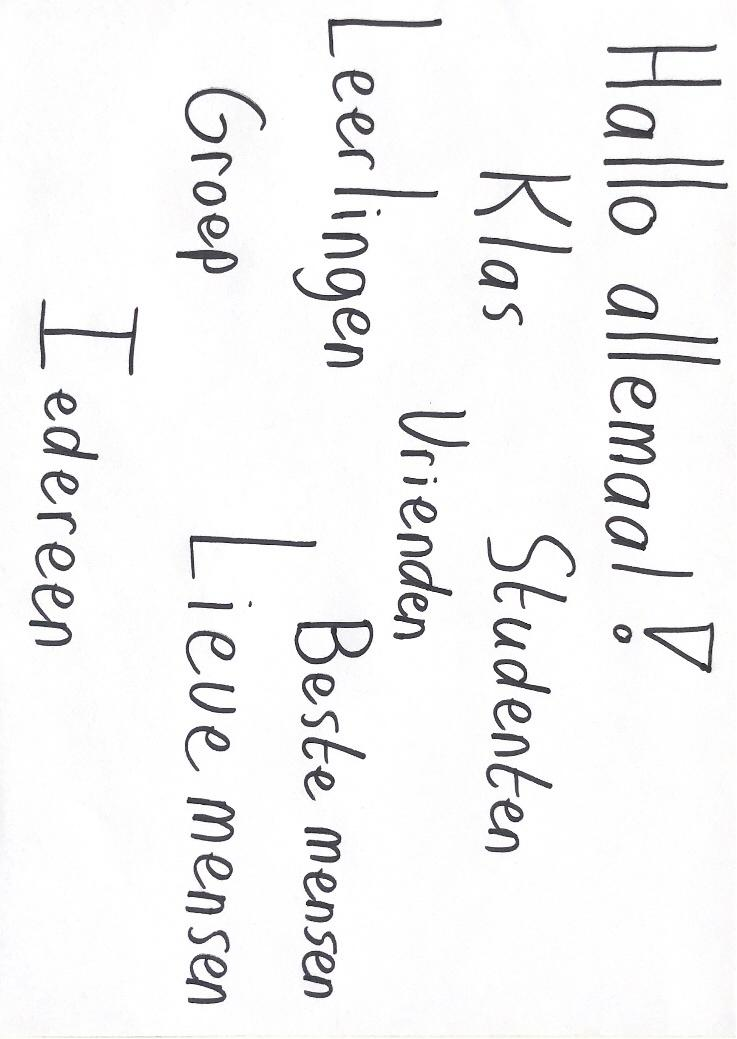 Hallo allemaal!
Klas Studenten
Vrienden
Leerlingen Beste mensen
Groep Lieve mensen
Iedereen